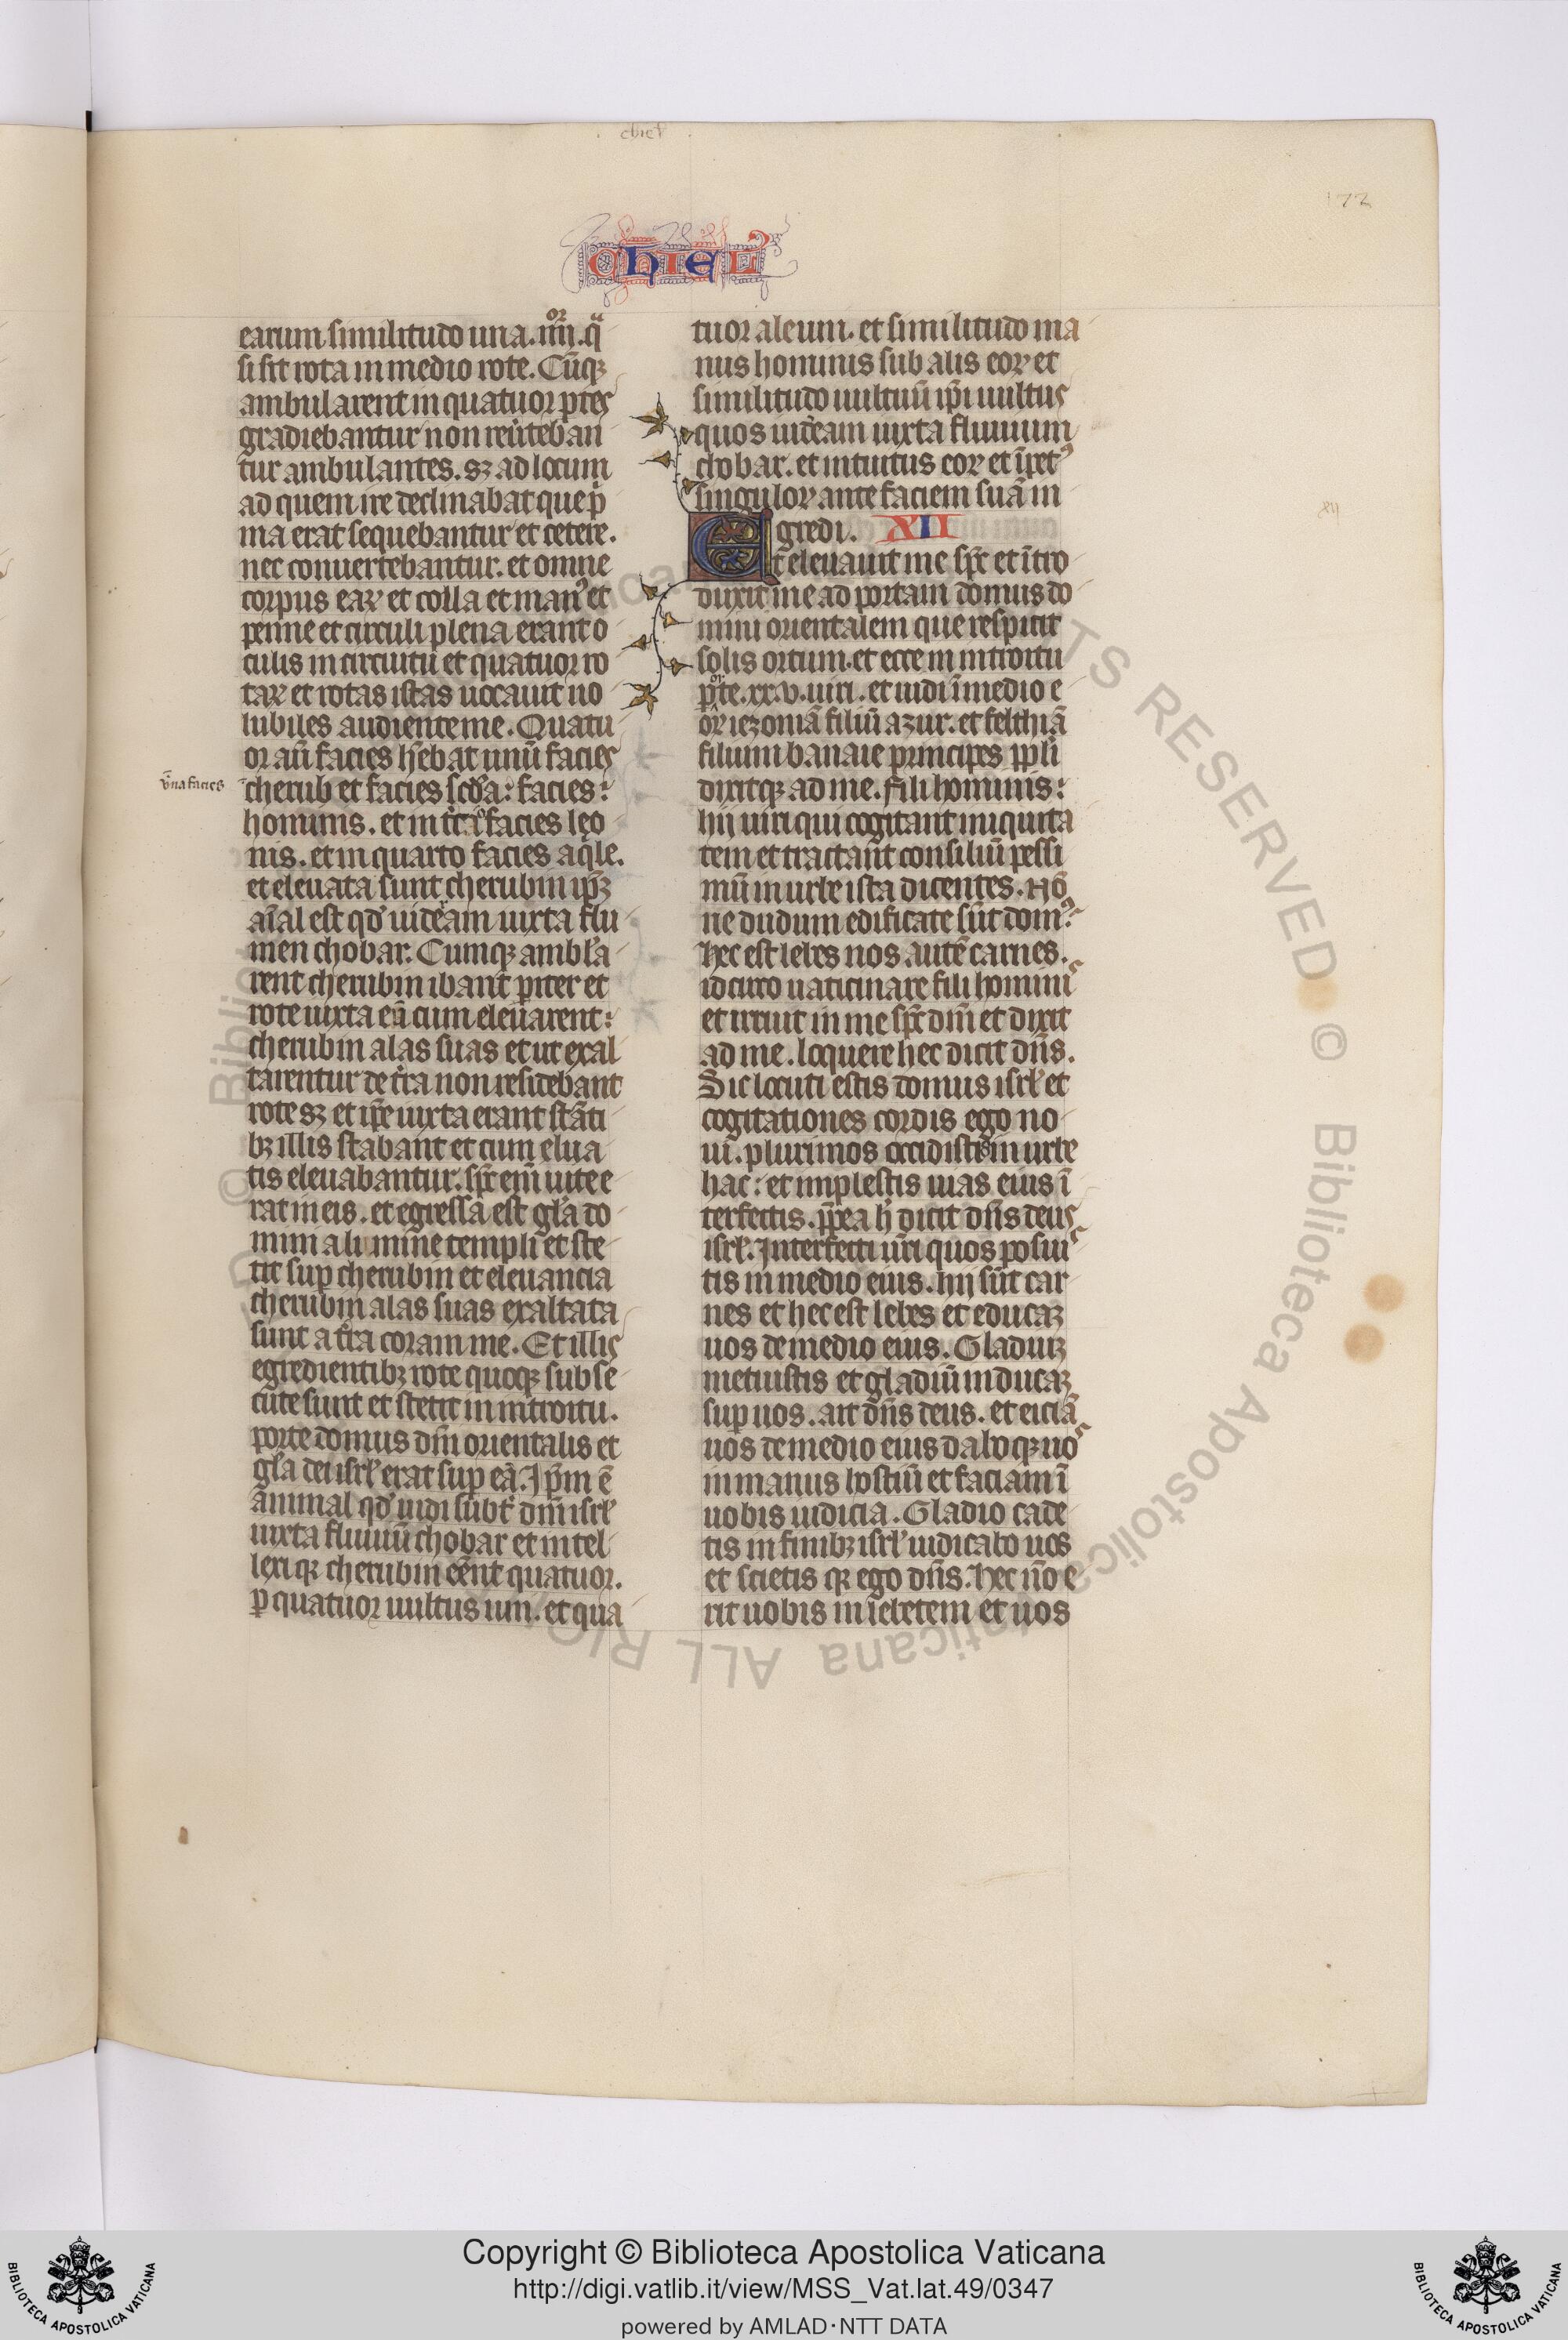 chiel
172
CHIEL
earum similitudo una. iiii^or. q^a
si sit rota in medio rote. Cũqꝫ
ambularent in quatuor ꝑtes
gradiebantur non reũteban
tur ambulantes. sꝫ ad locum
ad quem ire declinabat que p̃
ma erat sequebantur et cetere.
nec conuertebantur. et omne
corpus eaꝝ et colla et man⁹ et
penne et circuli plena erant o
culis in circuitu et quatuor ro
taꝝ et rotas istas uocauit uo
lubiles audiente me. Quatu
or aũt facies hẽbat unũ facies
v̄na facies
cherub et facies scd̃a: facies:
hominis. et in t̃cio facies leo
nis. et in quarto facies aq̃le.
et eleuata sunt cherubin ip̃ꝫ
aĩal est qd̃ uidẽam iuxta flu
men chobar. Cumqꝫ ambl̃a
rent cherubin ibant ꝑiter et
rote iuxta eã cum eleuarent:
cherubin alas suas et ut exal
tarentur de t̃ra non residebant
rote sꝫ et ip̃e iuxta erant stãti
bꝫ illis stabant et cum elua
tis eleuabantur. sp̃c em̃ uite e
rat in eis. et egressa est gl̃a do
mini a limine templi et ste
tit suꝑ cherubin et eleuancia
cherubin alas suas exaltata
sunt a t̃ra coram me. Et illis
egredientibꝫ rote quoqꝫ subse
cute sunt et stetit in introitu.
porte domus dñi orientalis et
gl̃a dei isrl̃ erat suꝑ eã. Ip̃m ẽ
animal qd̃ uidi subt̃ dm̃ isrl̃
iuxta fluuiũ chobar et intel
lexi qꝫ cherubin ẽent quatuor.
ꝑ quatuor uultus uni. et qua
tuor ale uni. et similitudo ma
nus hominis sub alis eoꝝ et
similitudo uultuũ ip̃i uultus
quos uidẽam iuxta fluuium
chobar. et intuitus eoꝝ et ĩpet⁹
singuloꝝ ante faciem suã in
gredi. XII
Et eleuauit me sp̃c et ĩtro
duxit me ad portam domus do
mini orientalem que respicit
solis ortum. et ecce in introitu
p^orte. xx.v. uiri. et uidi ĩ medio e
oꝝ iezoniã filiũ azur. et felthiã
filium banaie principes ppl̃i
dixitqꝫ ad me. fili hominis:
hij uiri qui cogitant iniquita
tem et tractant consiliũ pessi
mũ in urbe ista dicentes. Nõ
ne dudum edificate sũt dom⁹:
hec est lebes nos autẽ carnes.
idcirco uaticinare fili hominis
et irruit in me sp̃c dñi et dixit
ad me. loquere hec dicit dñs.
Sic locuti estis domus isrl̃ et
cogitationes cordis ego no
ui. plurimos occidistis in urbe
hac: et implestis uias eius ĩ
terfectis. pp̃ea h̃ dicit dñs deus
isrl̃. Interfecti ur̃i quos posuis
tis in medio eius. hij sũt car
nes et hec est lebes et educaꝫ
uos de medio eius. Gladiuꝫ
metuistis et gladiũ inducaꝫ
suꝑ uos. ait dñs deus. et eiciã
uos de medio eius daboqꝫ uos
in manus hostiũ et faciam ĩ
uobis iudicia. Gladio cade
tis in finibꝫ isrl̃ iudicabo uos
et scietis qꝫ ego dñs. hec ño e
rit uobis in lebetem et uos
© Biblioteca Apostolica Vaticana ALL RIGHTS RESERVED
BIBLIOTECA APOSTOLICA VATICANA
Copyright © Biblioteca Apostolica Vaticana
http://digi.vatlib.it/view/MSS_Vat.lat.49/0347
powered by AMLAD·NTT DATA
BIBLIOTECA APOSTOLICA VATICANA